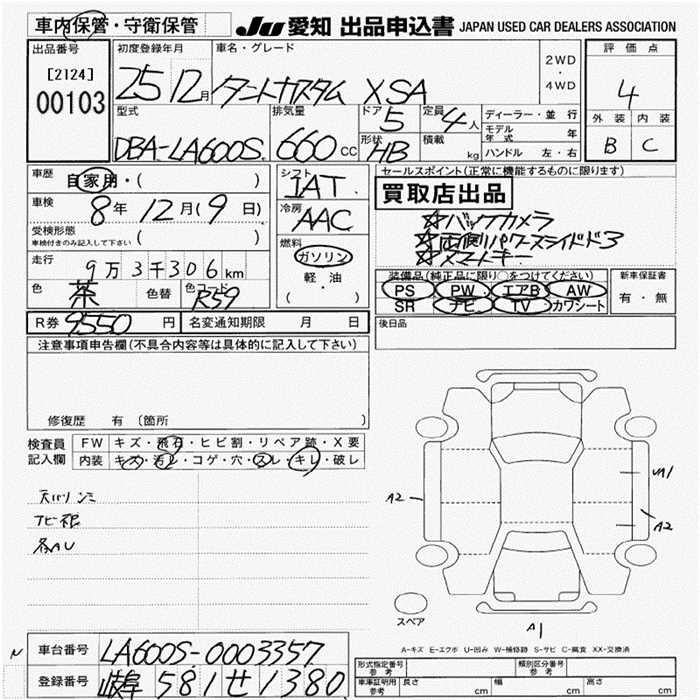 車内保管・守衛保管
JU 愛知 出品申込書 JAPAN USED CAR DEALERS ASSOCIATION
出品番号
[2124]
00103
初度登録年月
25 12月
車名・グレード
タントカスタム XSA
2WD
・
4WD
評価点
4
外装 内装
B C
型式
DBA-LA600S
排気量
660 CC
ドア 5
形状 HB
定員 4人
積載 kg
ディーラー・並行
モデル年式 年
ハンドル 左・右
車歴 自家用・( )
車検 8年 12月(9日)
受検形態
車検付きのみ記入して下さい ( )
走行 9万3千306km
色 茶 色替 色コード R59
シフト IAT
冷房 AAC
燃料
ガソリン
・
軽油
( )
セールスポイント(正常に機能するものに限ります)
買取店出品
☆バックカメラ
☆両側パワースライドドア
☆スマートキー
装備品(純正品に限り○をつけてください)
PS PW エアB AW
SR ナビ TV カワシート
新車保証書
有・無
R券 9550円 名変通知期限 月 日
後日品
注意事項申告欄(不具合内容等は具体的に記入して下さい)
修復歴 有 〔箇所 〕
検査員記入欄
FW キズ・飛石・ヒビ割・リペア跡・X要
内装 キズ・汚レ・コゲ・穴・スレ・キレ・破レ
各AU
A2
A2
A1
スペア
A-キズ E-エクボ U-凹み W-補修跡 S-サビ C-腐食 XX-交換済
N
車台番号 LA600S-0003357
登録番号 岐阜 581 せ 1380
形式指定番号
参考
類別区分番号
参考
車庫証明用
参考
長さ cm 幅 cm 高さ cm